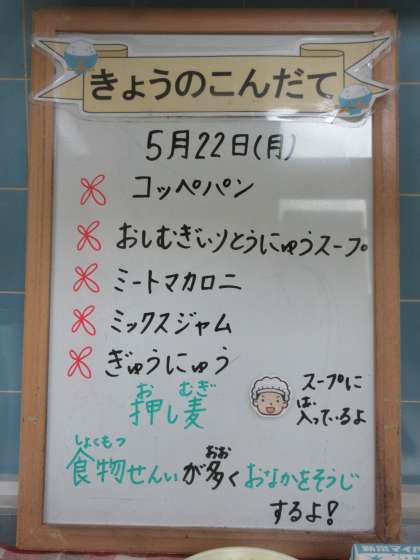 きょうのこんだて
5月22日(月)
コッペパン
おしむぎいりとうにゅうスープ
ミートマカロニ
ミックスジャム
ぎゅうにゅう
お むぎ
押し麦
は、
スープに
入っているよ
しょくもつ おお
食物せんいが多くおなかをそうじ
するよ!